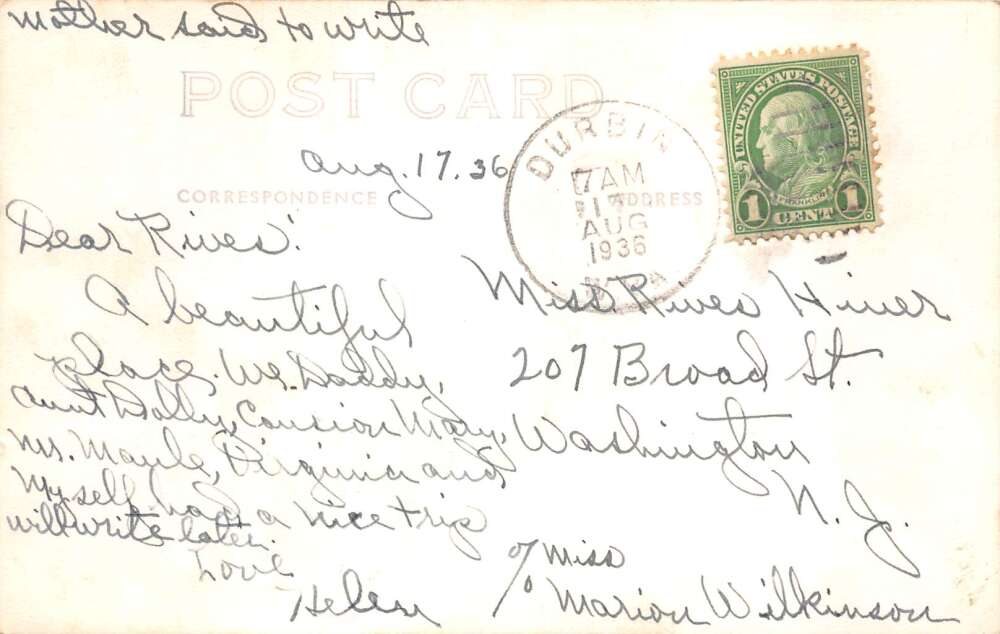 Mother said to write
POST CARD
Aug. 17. 36
CORRESPONDENCE
ADDRESS
DURBIN
7 AM
17
AUG
1936
W.VA
UNITED STATES POSTAGE
FRANKLIN
1 CENT 1
Dear Rives:
A beautiful
place. We. Daddy,
Aunt Dolly, Cousion Mary,
Mr. Maule, Virginia and
Myself. had a nice trip
will write later.
Love
Helen
Miss Rives Hiner
207 Broad St.
Washington
N. J.
c/o Miss
Marion Wilkinson